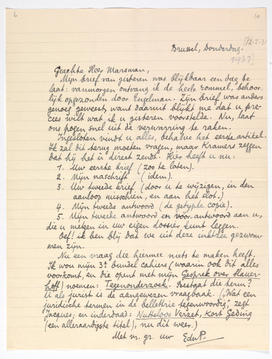 Brussel, Donderdag.
Geachte Heer Marsman,
Mijn brief van gisteren was blijkbaar een dag te
laat: vanmorgen ontvang ik de heele rommel, behoor-
lijk opgezonden door Engelman. Zijn brief was anders
genoeg geweest, want daaruit blijkt me dat u pre-
cies wilt wat ik u gisteren voorstelde. Nu, laat
ons pogen snel uit de verwarring te raken.
Ingesloten vindt u alles, behalve het eerste artikel.
Ik zal dit terug moeten vragen, maar Kramers zeggen
dat hij het u direct zendt. Hier heeft u nu:
1. Uw eerste brief (zoo te laten).
2. Mijn naschrift (idem).
3. Uw tweede brief (door u te wijzigen, in den
aanloop misschien, en aan het slot).
4. Mijn tweede antwoord (de getypte copie).
5. Mijn tweede antwoord en voor-antwoord aan u,
die u meteen in uw eigen dossier kunt leggen.
Oef! ik ben blij dat we uit deze miserie gekomen
zijn.
Nu een vraag die hiermee niets te maken heeft.
Ik wou mijn 3e bundel cahiers (waarin ook dit alles
voorkomt, en die opent met mijn Gesprek over Slauer-
hoff) noemen: Tegenonderzoek. Bestaat die term?
U als jurist is de aangewezen vraagbaak. (Wat een
juridische termen in de belletrie tegenwoordig, zegt
Jacques; en inderdaad: Nutteloos Verzet, Kort Geding
(een alleraardigste titel), nu dit weer.)
Met vr. gr. uw EduP.